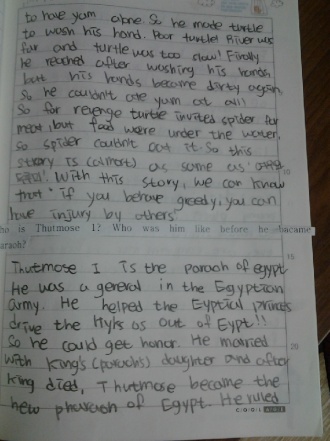 to have yam alone. So he made turtle
to wash his hand. Poor turtle! River was
far and turtle was too slow! Finally
he reached after washing his hands,
but his hands become dirty again
So he couldn't ate yum at all!
So for revenge turtle invited spider for
meat, but food were under the water,
so spider couldn't eat it. So this
strory is (almort) as same as
With this story, we can know
that " if you behave greedy, you can
have injury by others"
ho is Thutmose 1? Who was him like before he bacame
araoh?
15
Thutmose I is the paraoh of egypt
He was a general in the Egyption
army. He helped the Eyptical princes
drive the Hyks as out of Eypt!!
So he could get honor. He married
20
with king's (paraoh's) daughter and after
king died, Thutmose became the
new pharaoh of Egypt. He ruled